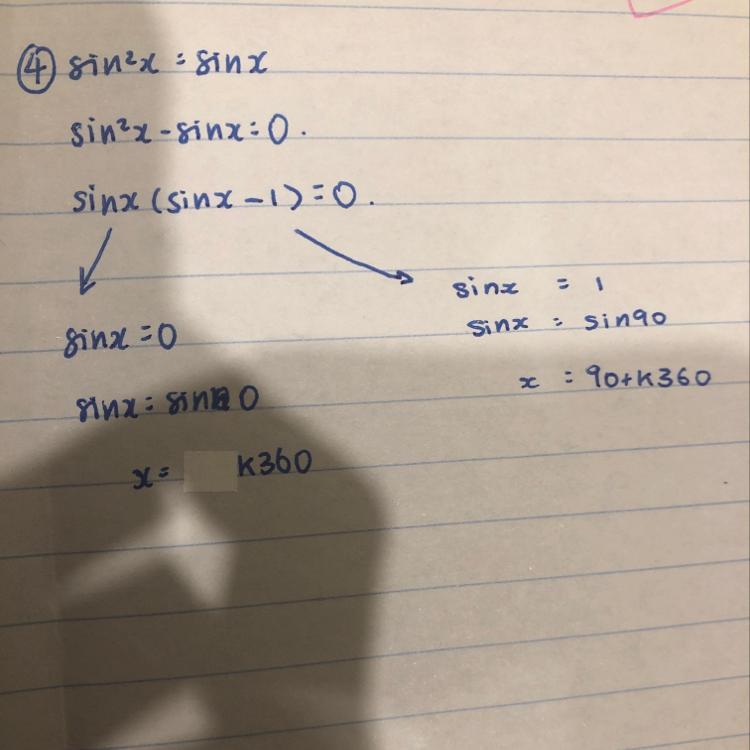 ④ sin²x = sinx
sin²x - sinx = 0.
sinx (sinx - 1) = 0.
sinx = 0
sinx = sin 0
x = k360
sinx = 1
sinx = sin90
x = 90+k360